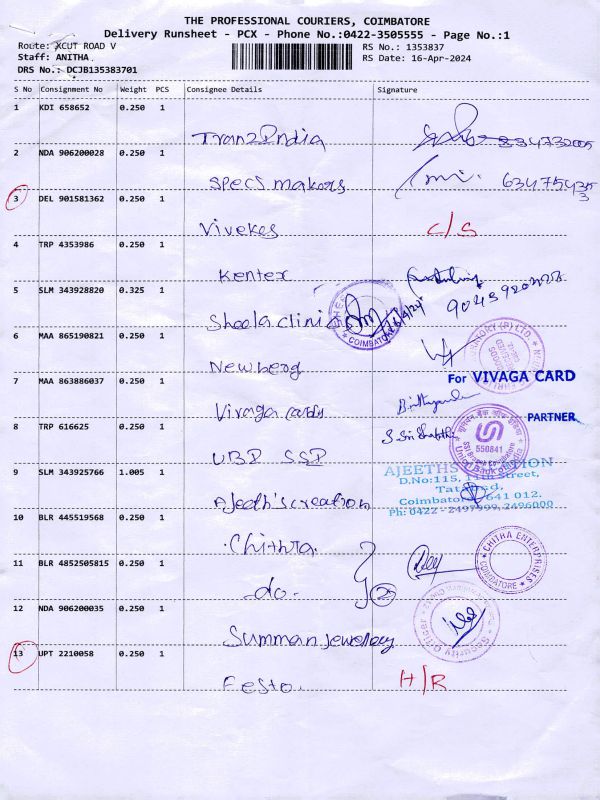 THE PROFESSIONAL COURIERS, COIMBATORE
Delivery Runsheet - PCX - Phone No.:0422-3505555 - Page No.:1
Route: XCUT ROAD V
RS No.: 1353837
Staff: ANITHA
RS Date: 16-Apr-2024
DRS No.: DCJB135383701
S No Consignment No Weight PCS Consignee Details Signature
1 KDI 658652 0.250 1
Tranz India
2 NDA 906200028 0.250 1
Specs makers
3 DEL 901581362 0.250 1
Vivekes C/S
4 TRP 4353986 0.250 1
Kentex
5 SLM 343928820 0.325 1
Sheela clinic
COIMBATORE
6 MAA 865190821 0.250 1
Newberg
For VIVAGA CARD
7 MAA 863886037 0.250 1
Vivaga cards
PARTNER
8 TRP 616625 0.250 1
UBI SSI
Union Bank of India
550841
9 SLM 343925766 1.005 1
Ajeeth's creation
D.No:115,
Street,
Coimbatore 641 012.
Ph: 0422 - 2497999, 2496000
10 BLR 445519568 0.250 1
Chithra
CHITRA ENTERPRISES
COIMBATORE
11 BLR 4852505815 0.250 1
do. 2
12 NDA 906200035 0.250 1
Summan jewellery
Security Officer
13 UPT 2210058 0.250 1
Festo. H/R